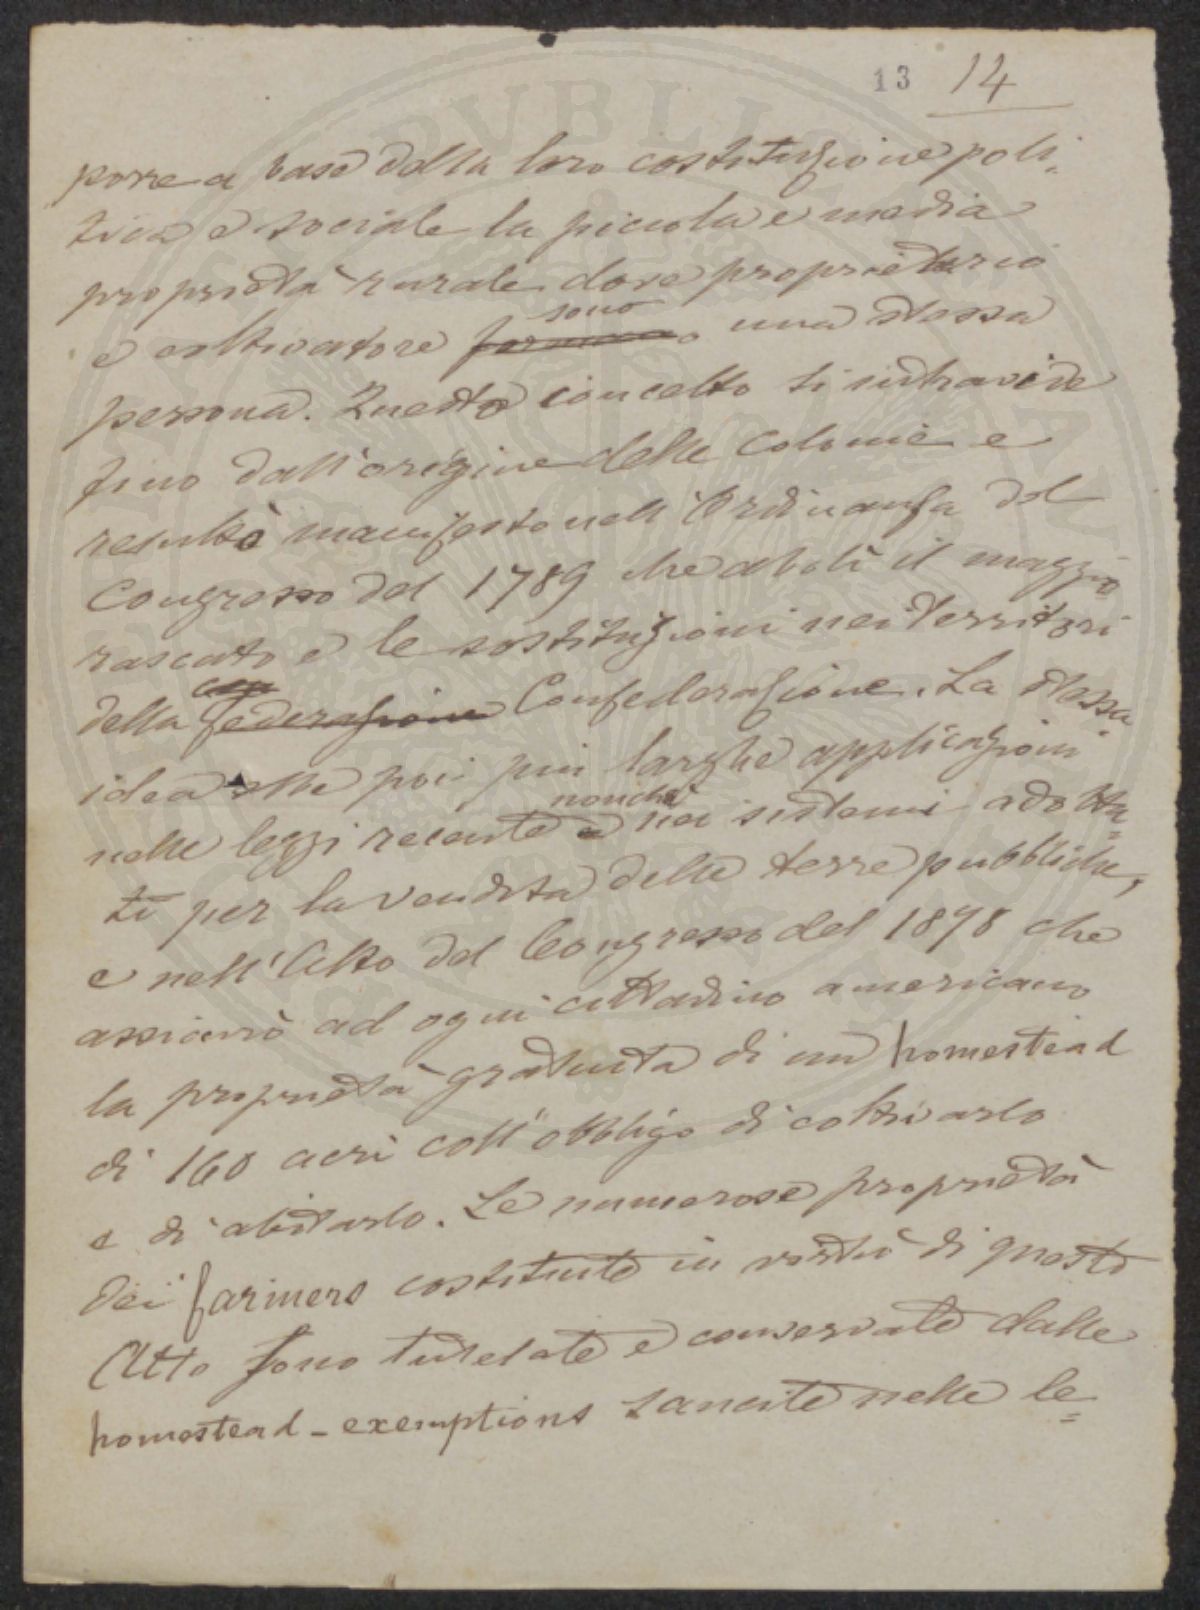 13 14
porre a base della loro costituzione poli-
tica e sociale la piccola e media
proprietà rurale dove proprietario
sono
e coltivatore formano una stessa
persona. Questo concetto si intravide
fino dall'origine delle Colonie e
resultò manifesto nell'Ordinanza del
Congresso del 1789 che abolì il maggio-
rascato e le sostituzioni nei Territori
della federazione Confederazione. La stessa
idea ebbe poi più larghe applicazioni
nonchè
nelle leggi recenti e nei sistemi adotta=
ti per la vendita delle terre pubbliche,
e nell'Atto del Congresso del 1878 che
assicurò ad ogni cittadino americano
la proprietà gratuita di un homestead
di 160 acri coll'obbligo di coltivarlo
e di abitarlo. Le numerose proprietà
dei farmers costituite in virtù di questo
Atto sono tutelate e conservate dalle
homestead-exemptions sancite nelle le=